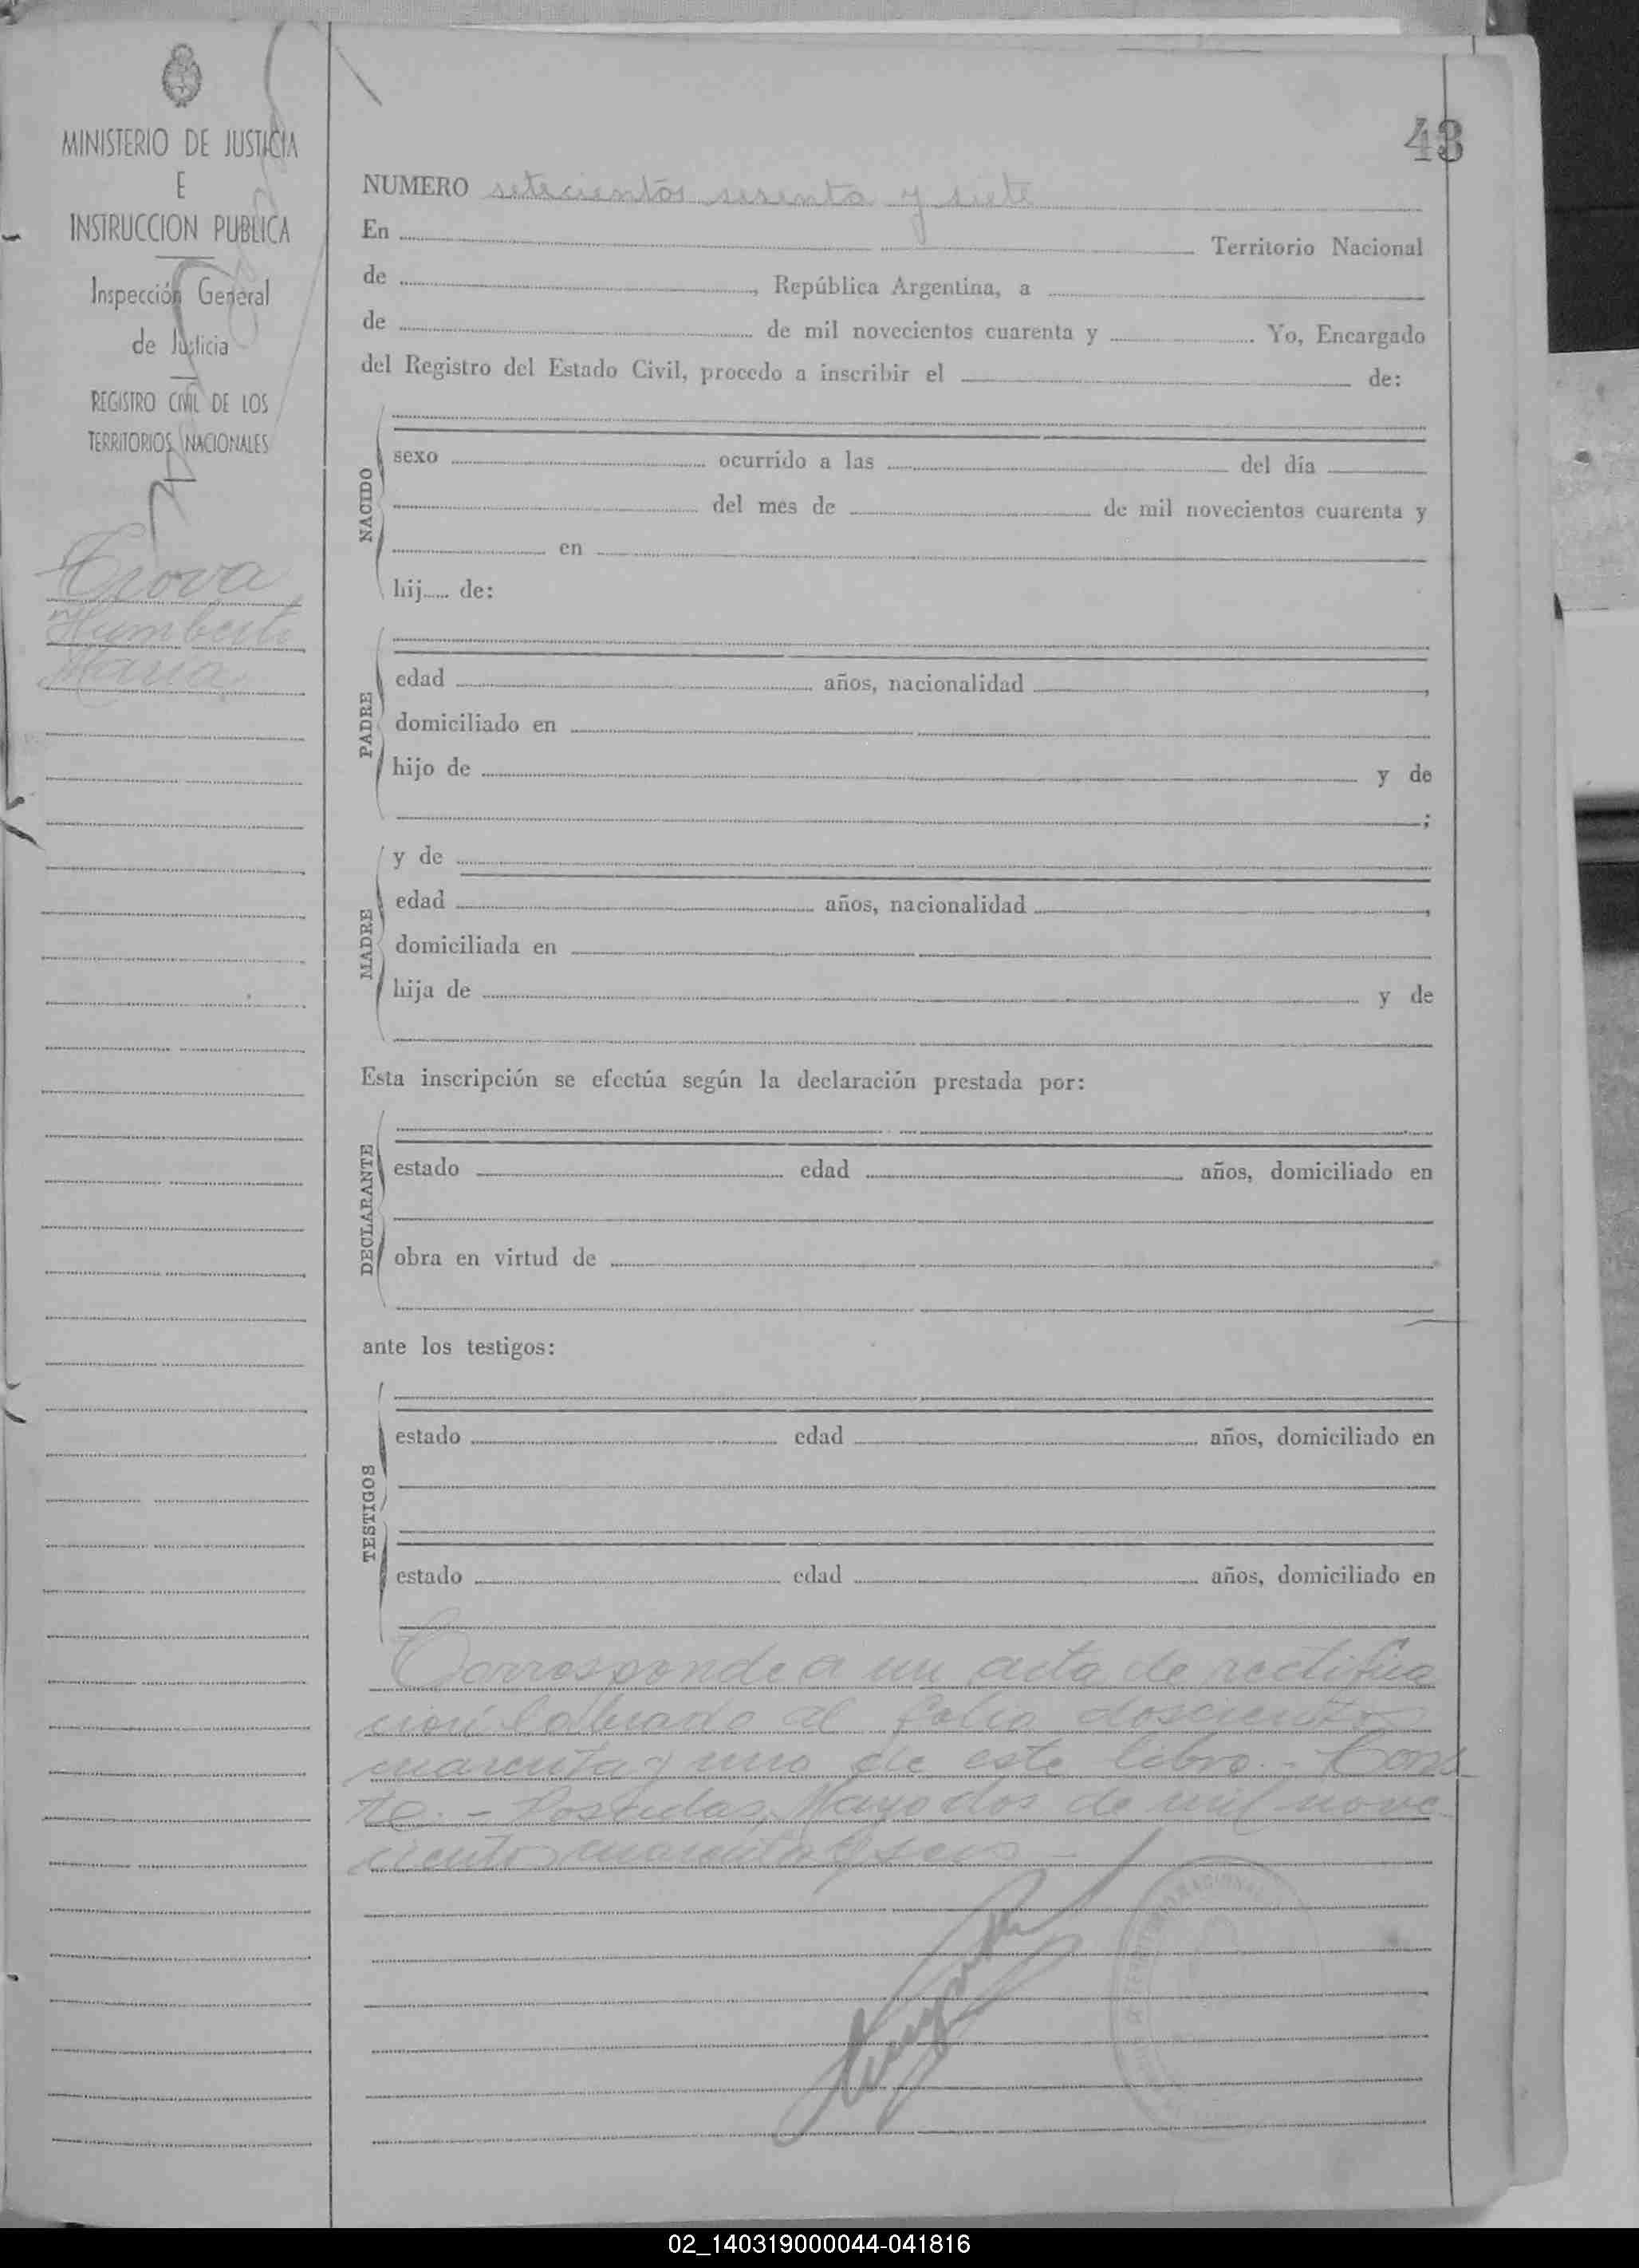 MINISTERIO DE JUSTICIA
E
INSTRUCCION PUBLICA
Inspección General
de Justicia
REGISTRO CIVIL DE LOS
TERRITORIOS NACIONALES
Humberto
Maria
43
NUMERO setecientos sesenta y siete
En Territorio Nacional
de , República Argentina, a
de de mil novecientos cuarenta y . Yo, Encargado
del Registro del Estado Civil, procedo a inscribir el de:
NACIDO
sexo ocurrido a las del día
del mes de de mil novecientos cuarenta y
en
hij..... de:
PADRE
edad años, nacionalidad ,
domiciliado en
hijo de y de
;
MADRE
y de
edad años, nacionalidad ,
domiciliada en
hija de y de
Esta inscripción se efectúa según la declaración prestada por:
DECLARANTE
estado edad años, domiciliado en
obra en virtud de
ante los testigos:
TESTIGOS
estado edad años, domiciliado en
estado edad años, domiciliado en
Corresponde a un acta de rectifica
ción labrada al folio doscientos
cuarenta y uno de este libro. - Cons
te. - Posadas, Mayo dos de mil nove
cientos cuarenta y seis -
02_140319000044-041816